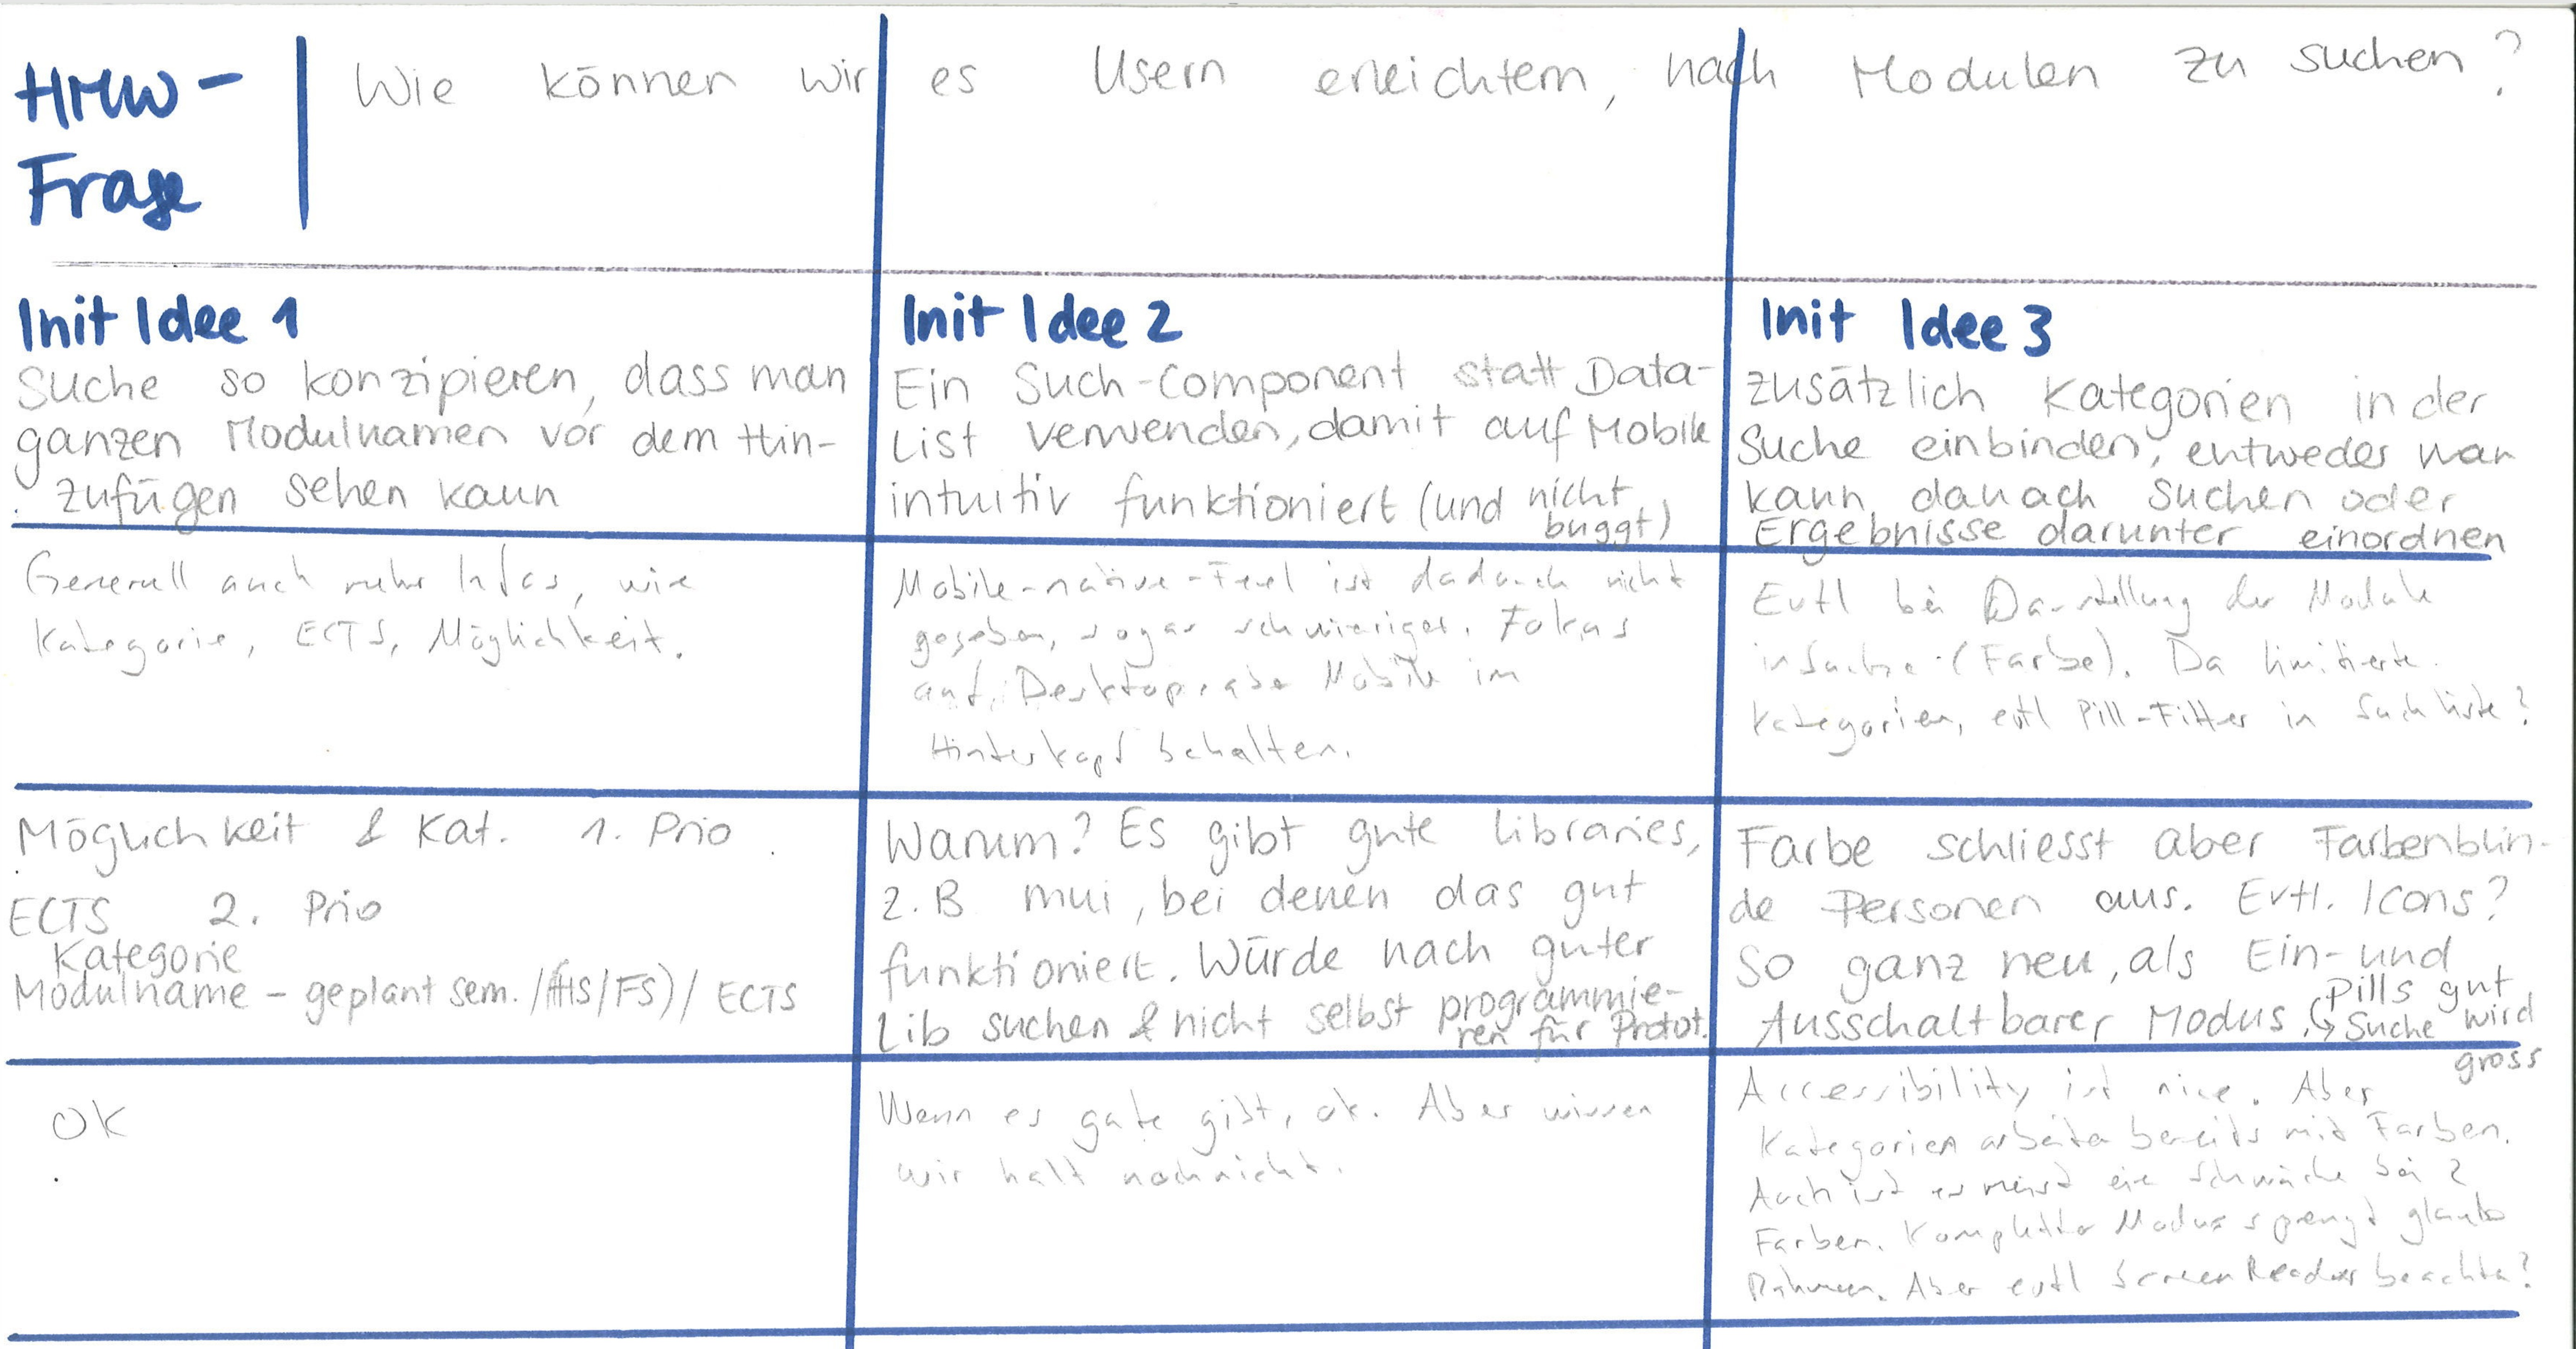 HMW-
Frage
Wie können wir es Usern erleichtern, nach Modulen zu suchen?
Init Idee 1
Suche so konzipieren, dass man
ganzen Modulnamen vor dem Hin-
zufügen sehen kann
Init Idee 2
Ein Such-Component statt Data-
List verwenden, damit auf Mobile
intuitiv funktioniert (und nicht
buggt)
Init Idee 3
zusätzlich Kategorien in der
Suche einbinden, entweder man
kann danach suchen oder
Ergebnisse darunter einordnen
Generell auch mehr Infos, wie
Kategorie, ECTS, Möglichkeit.
Mobile-native-Feel ist dadurch nicht
gegeben, sogar schwieriger. Fokus
auf Desktop, aber Mobile im
Hinterkopf behalten.
Evtl bei Darstellung der Module
in Suche (Farbe). Da limitierte
Kategorien, evtl Pill-Filter in Suchliste?
Möglichkeit & Kat. 1. Prio
ECTS 2. Prio
Kategorie
Modulname - geplant sem. /(HS/FS)/ ECTS
Warum? Es gibt gute Libraries,
z.B mui, bei denen das gut
funktioniert. Würde nach guter
Lib suchen & nicht selbst programmie-
ren für Protot.
Farbe schliesst aber Farbenblin-
de Personen aus. Evtl. Icons?
So ganz neu, als Ein- und
Ausschaltbarer Modus. Pills gut
↳ Suche wird
gross
OK
Wenn es gute gibt, ok. Aber wissen
wir halt noch nicht.
Accessibility ist nice. Aber
Kategorien arbeiten bereits mit Farben.
Auch ist es meist eine Schwäche bei 2
Farben. Kompletter Modus sprengt glaub
Rahmen. Aber evtl ScreenReader beachten?